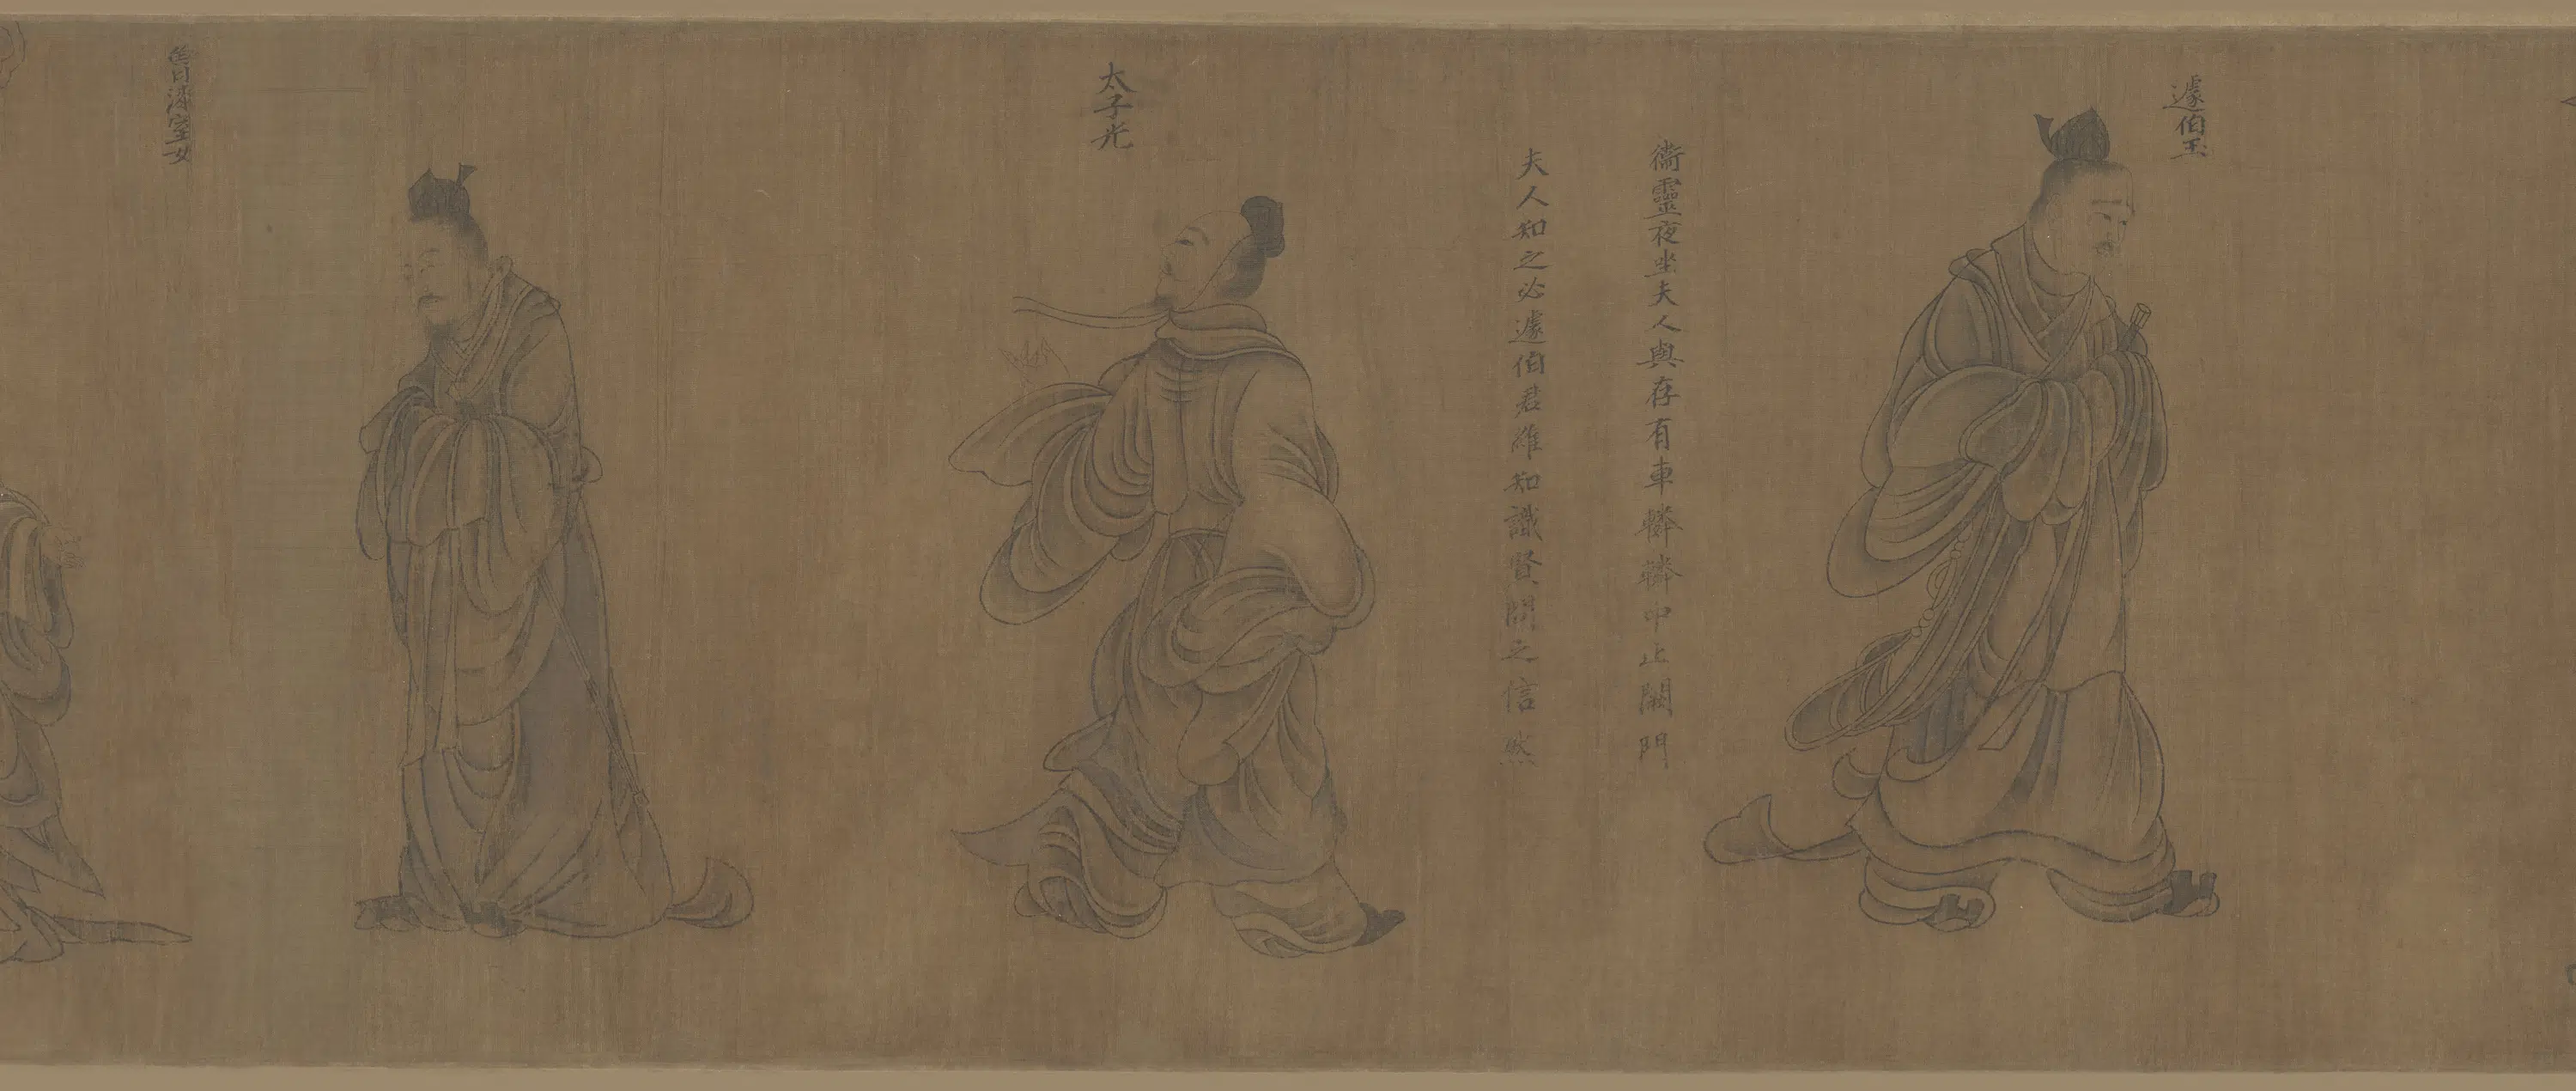 遽伯玉
衞靈夜坐夫人與存有車轔轔中止闕門
夫人知之必遽伯君維知識賢問之信然
太子光
魯漆室女